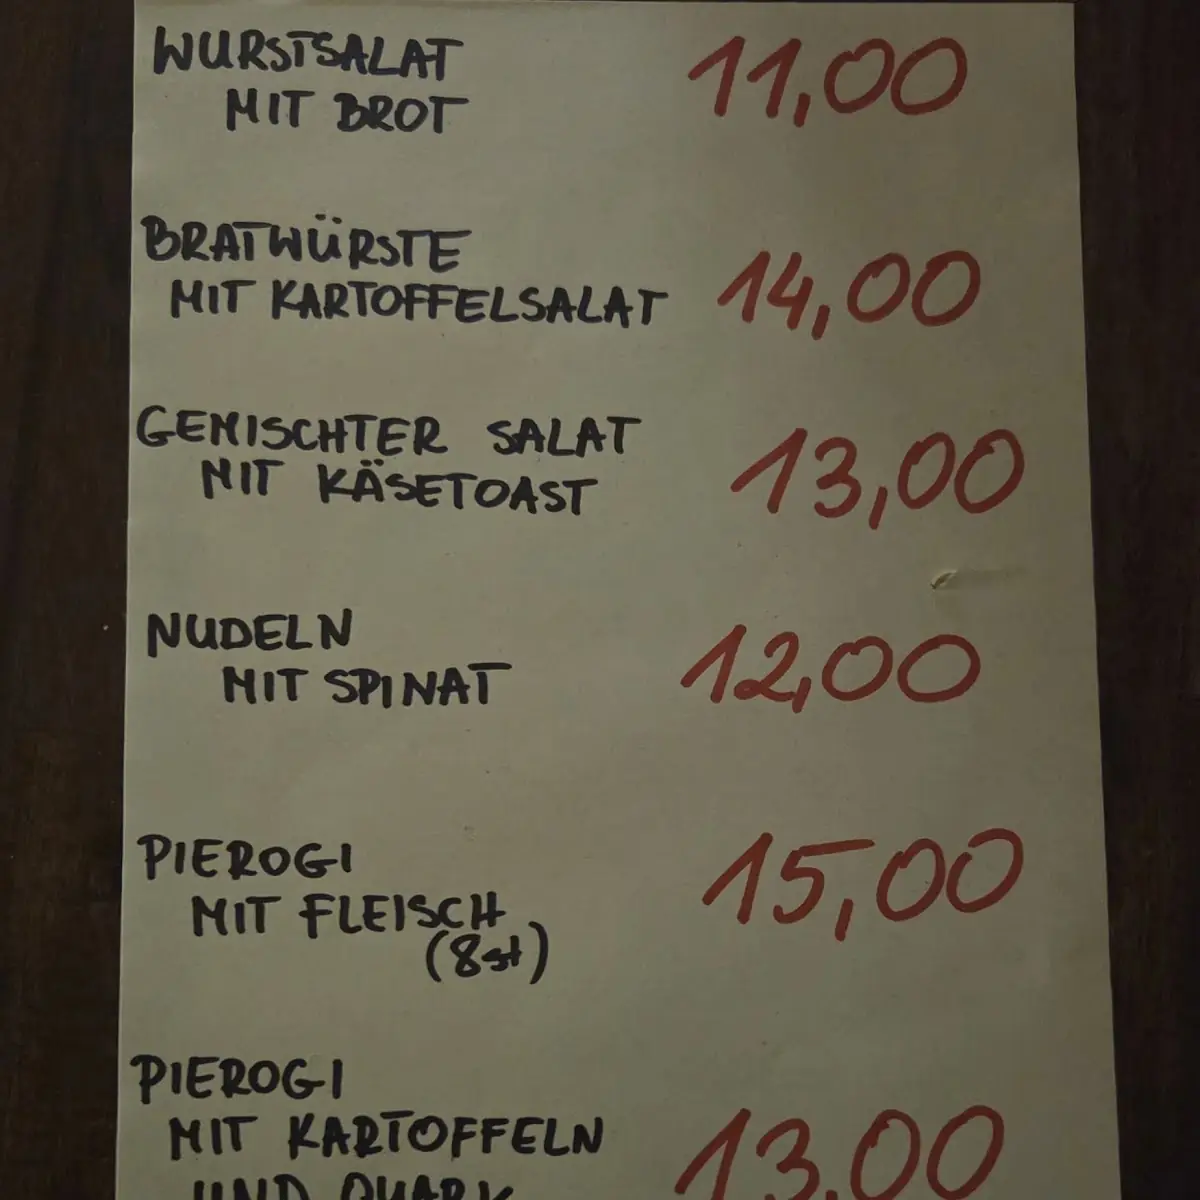 WURSTSALAT 11,00
MIT BROT
BRATWÜRSTE
MIT KARTOFFELSALAT 14,00
GEMISCHTER SALAT
MIT KÄSETOAST 13,00
NUDELN
MIT SPINAT 12,00
PIEROGI 15,00
MIT FLEISCH
(8st)
PIEROGI
MIT KARTOFFELN 13,00
UND QUARK